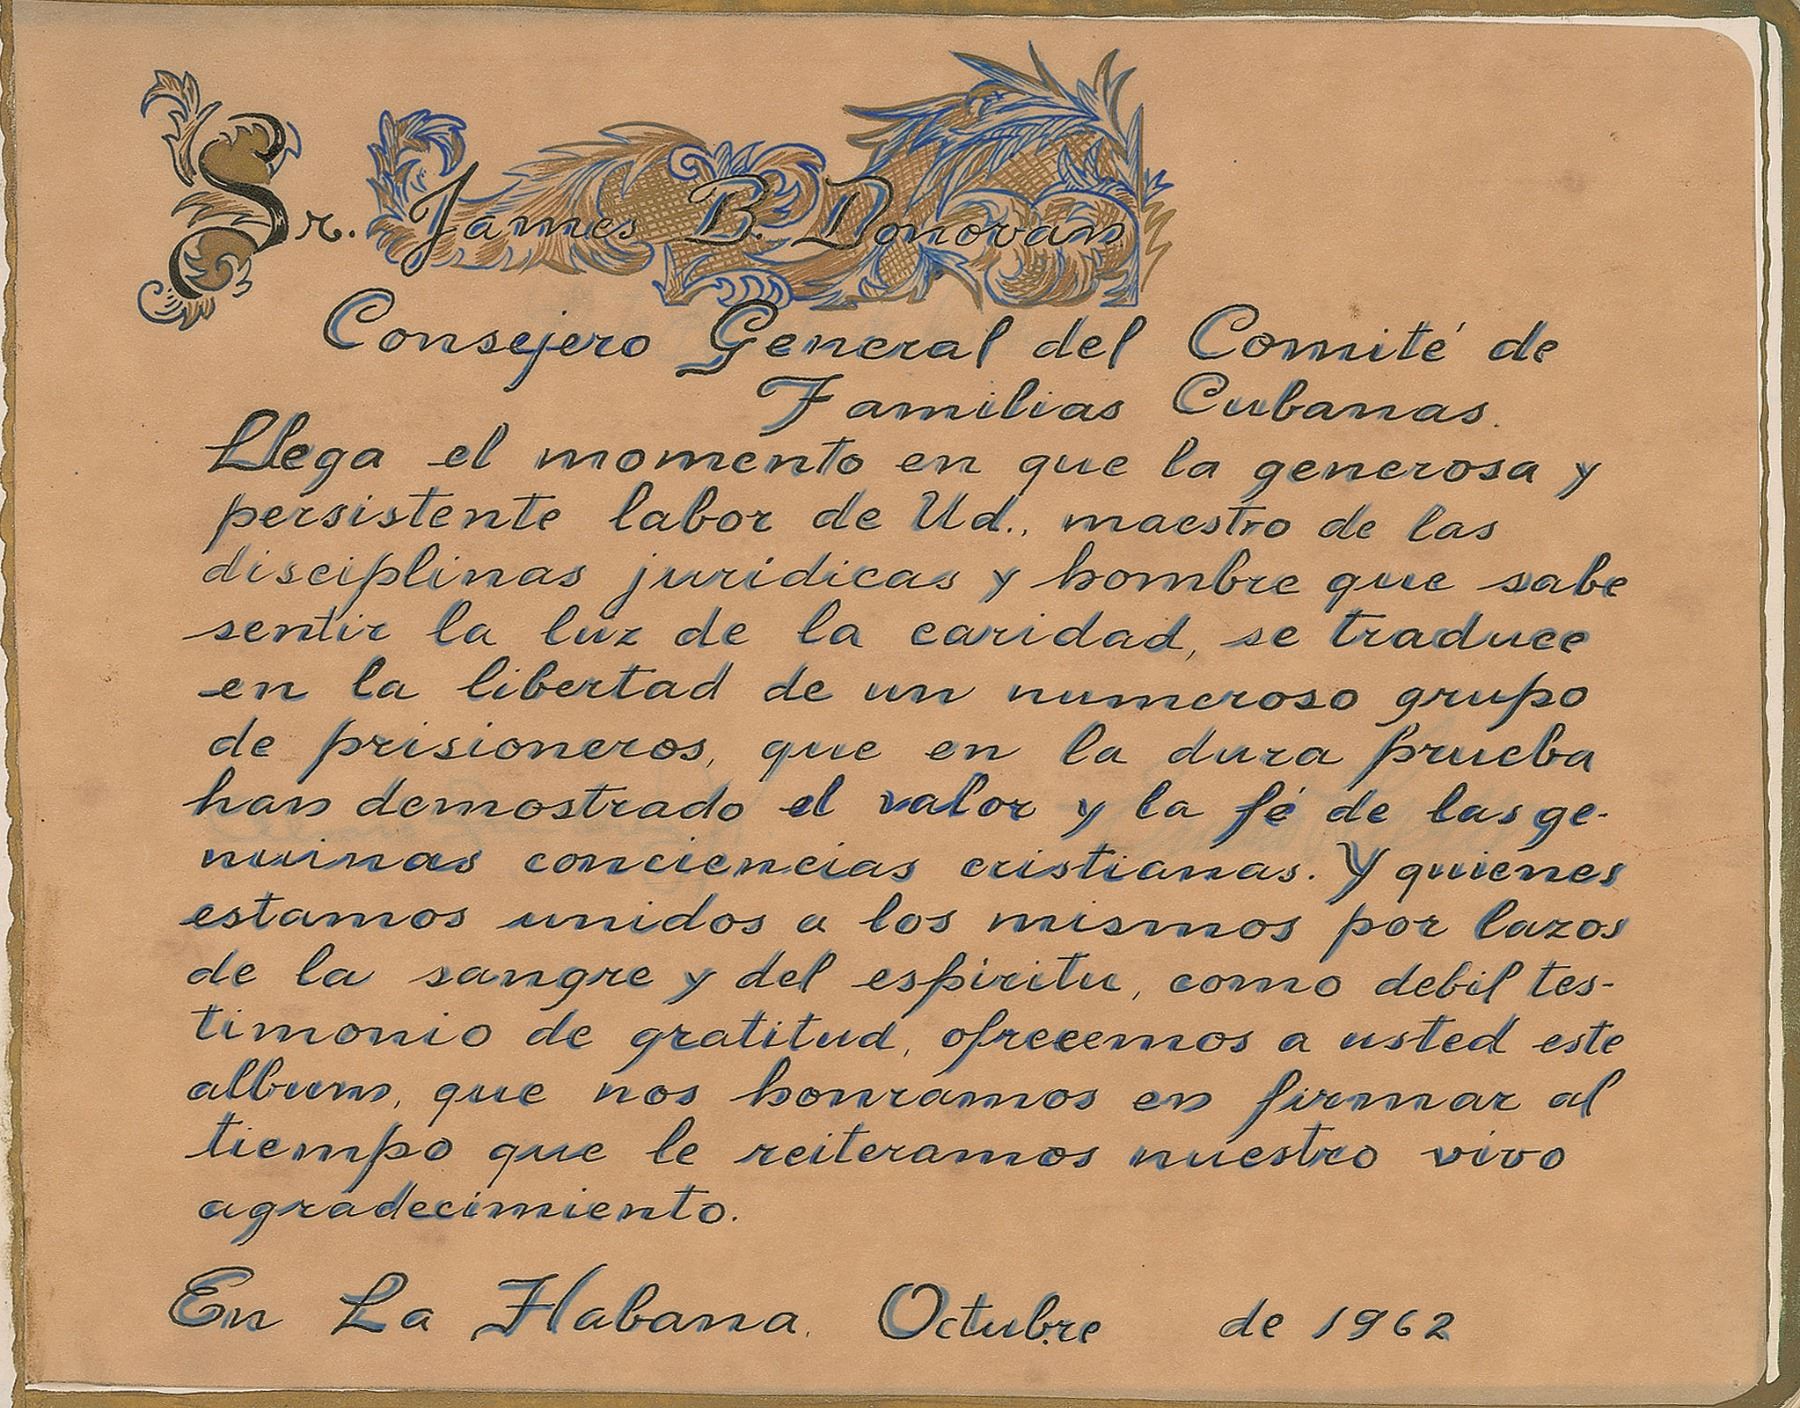 Sr. James B. Donovan
Consejero General del Comité de
Familias Cubanas.
Llega el momento en que la generosa y
persistente labor de Ud., maestro de las
disciplinas juridicas y hombre que sabe
sentir la luz de la caridad, se traduce
en la libertad de un numeroso grupo
de prisioneros, que en la dura prueba
han demostrado el valor y la fé de las ge-
nuinas conciencias cristianas. Y quienes
estamos unidos a los mismos por lazos
de la sangre y del espiritu, como debil tes-
timonio de gratitud, ofrecemos a usted este
album, que nos honramos en firmar al
tiempo que le reiteramos nuestro vivo
agradecimiento.
En La Habana. Octubre de 1962